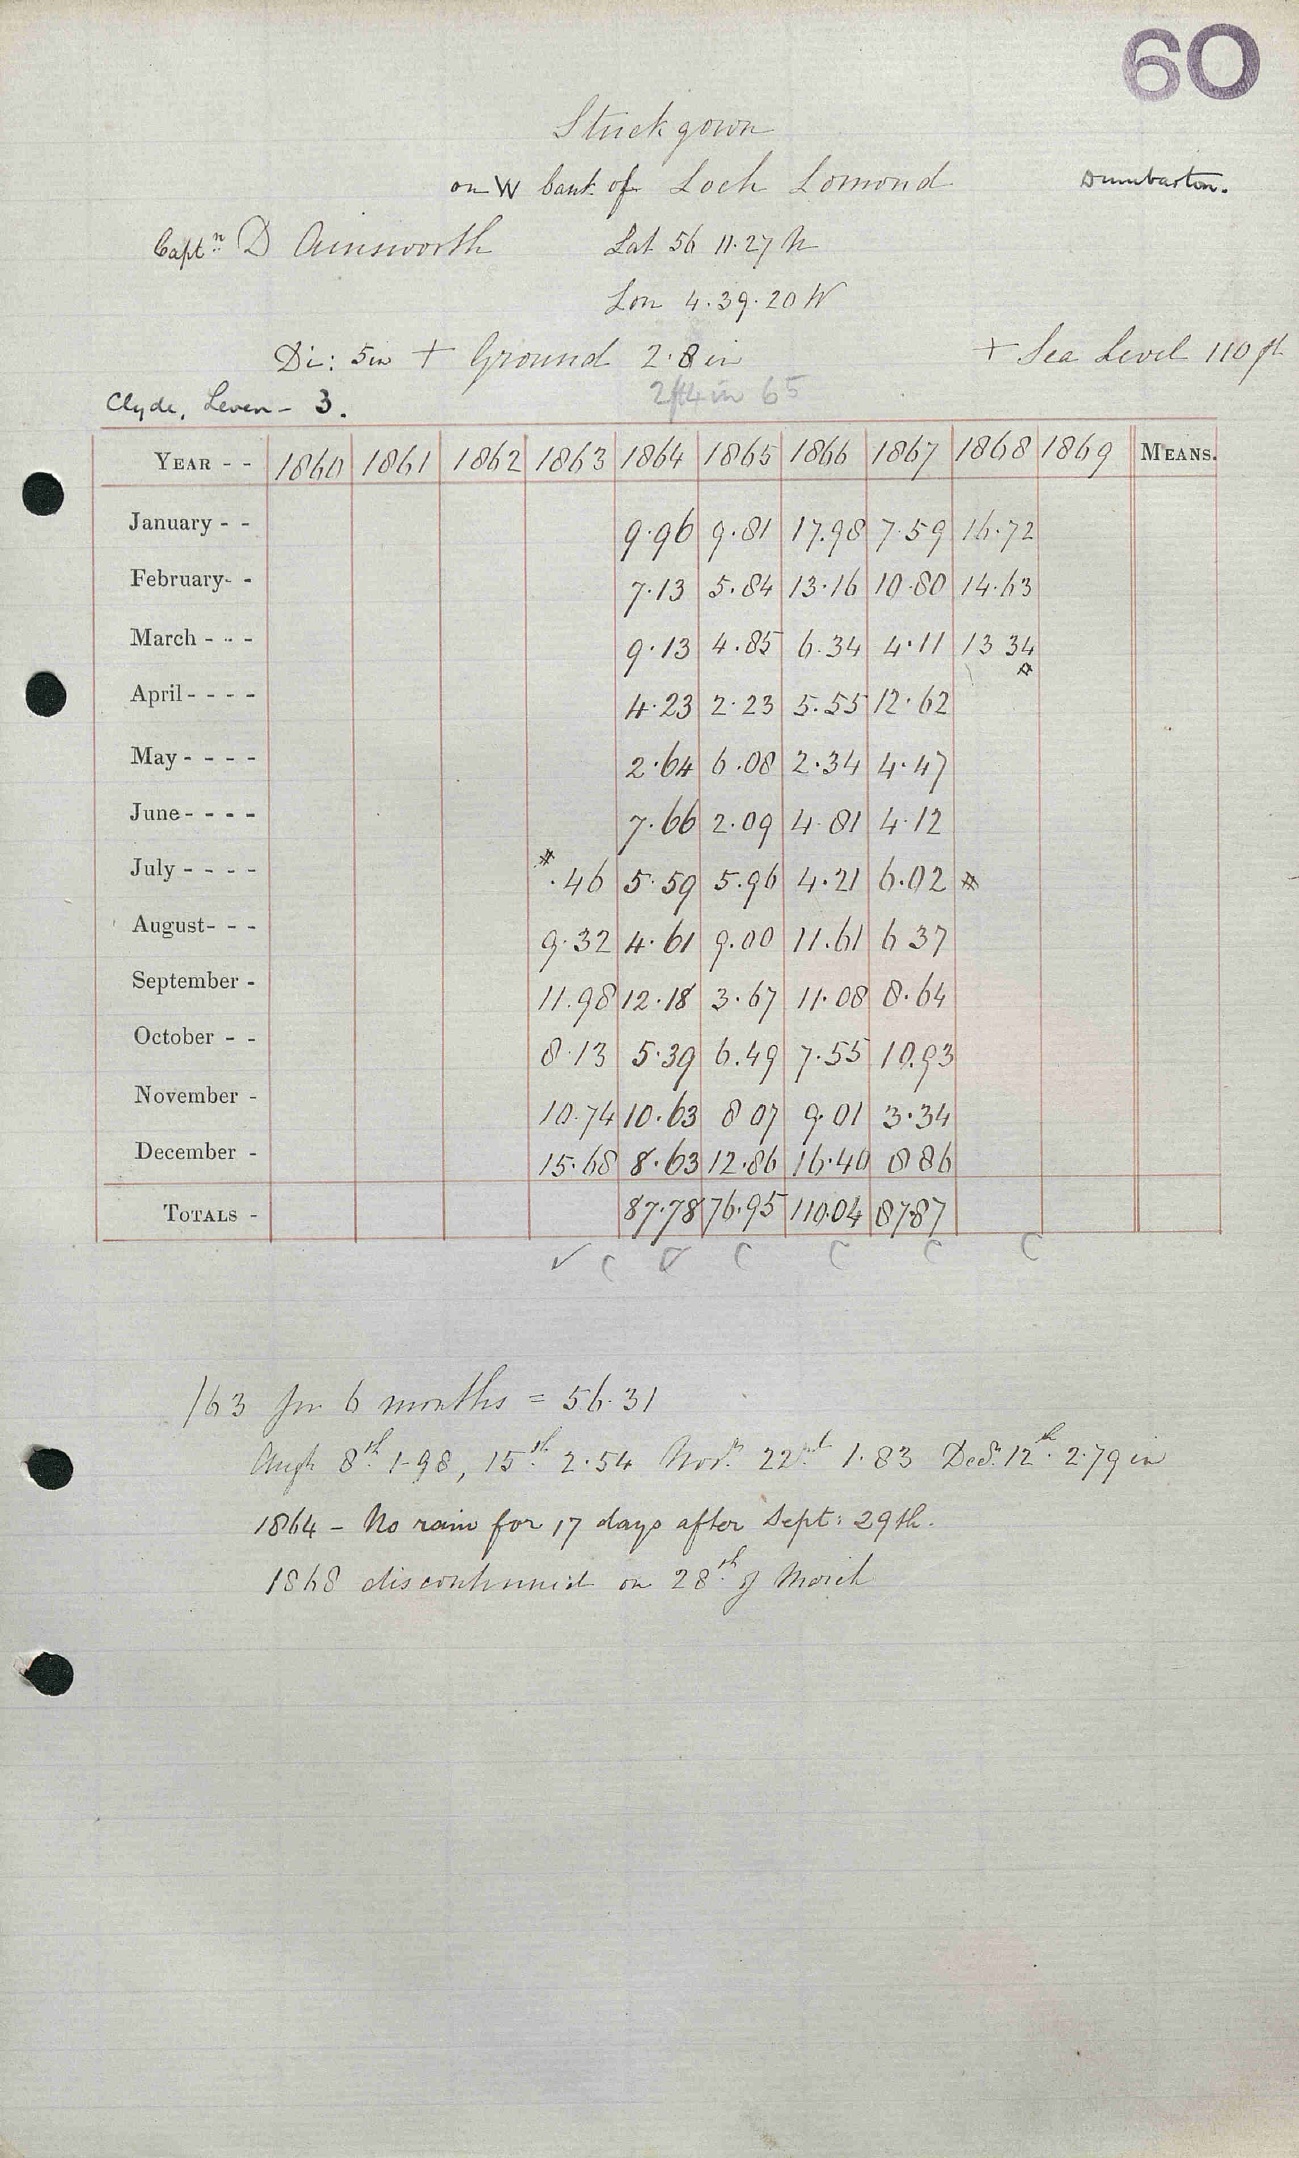 60
Stuckgown
on W bank of Loch Lomond Dumbarton.
Captn D Ainsworth Lat 56 11.27 N
Lon 4.39.20 W
Di: 5in + Ground 2.8 in + Sea Level 110 ft
2ft4in 65
Clyde, Leven - 3.
YEAR - - 1860 1861 1862 1863 1864 1865 1866 1867 1868 1869 MEANS.
January - - 9.96 9.81 17.98 7.59 16.72
February - - 7.13 5.84 13.16 10.80 14.63
March - - - 9.13 4.85 6.34 4.11 13 34 #
April - - - - 4.23 2.23 5.55 12.62
May - - - - 2.64 6.08 2.34 4.47
June - - - - 7.66 2.09 4.81 4.12
July - - - - # .46 5.59 5.96 4.21 6.02 #
August - - - 9.32 4.61 9.00 11.61 6 37
September - 11.98 12.18 3.67 11.08 8.64
October - - 8.13 5.39 6.49 7.55 10.93
November - 10.74 10.63 8 07 9.01 3.34
December - 15.68 8.63 12.86 16.40 8 86
TOTALS - 87.78 76.95 110.04 87.87
✓ C ✓ C C C C
/63 for 6 months = 56.31
Augt 8th 1.98, 15th 2.54 Novr 22nd 1.83 Decr 12th 2.79 in
1864 - No rain for 17 days after Sept: 29th.
1868 discontinued on 28th of March